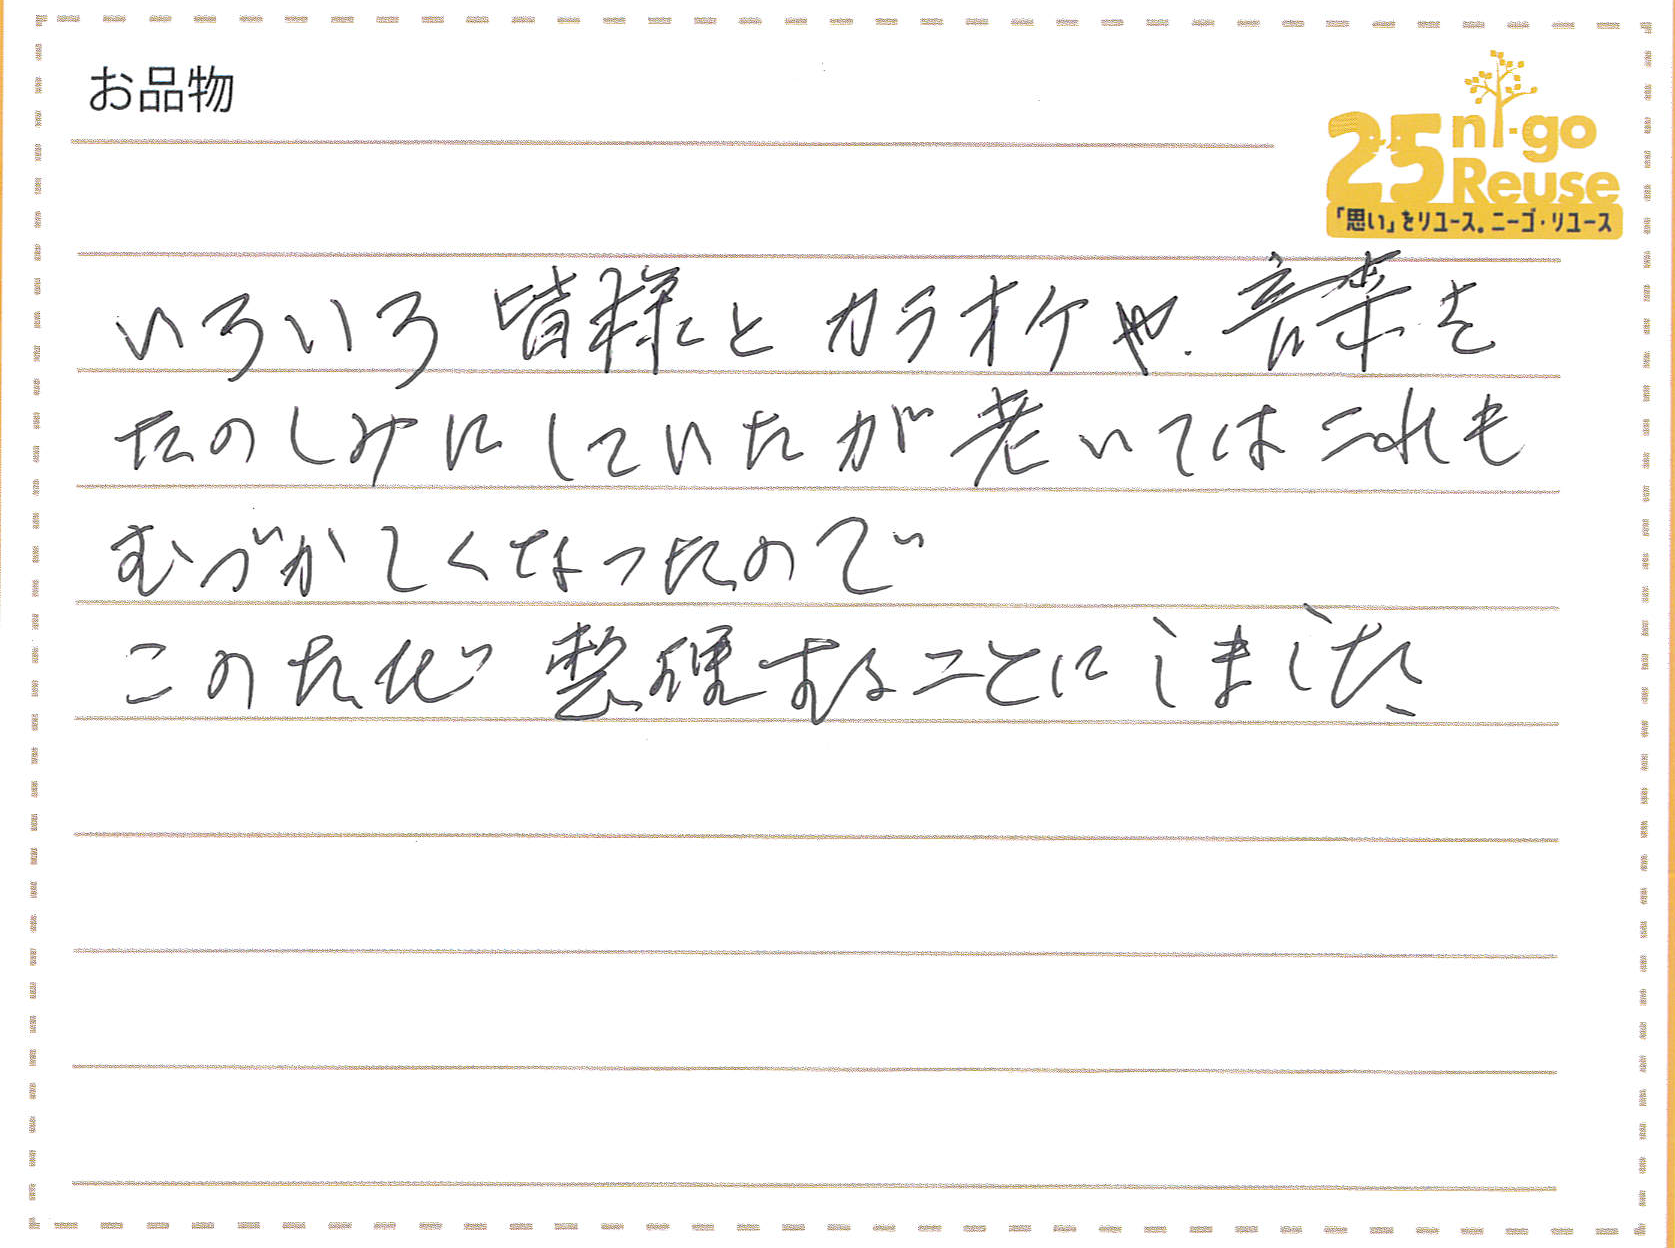 お品物
25 ni-go
Reuse
「思い」をリユース。ニーゴ・リユース
いろいろ 皆様と カラオケや 音楽を
たのしみにしていたが老いてはこれも
むづかしくなったので
このたび 整理することにしました